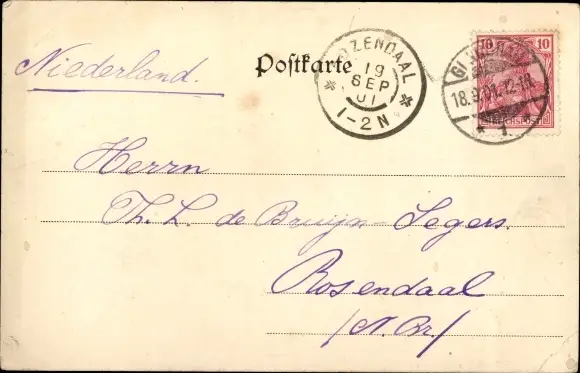 Niederland.
Postkarte
ZENDAAL
19
SEP
01
1-2N
10 10
18.9.01.12-1N.
REICHSPOST
* 1.
Herrn
Th. L. de Bruijn-Segers.
Rosendaal
/N. Br/